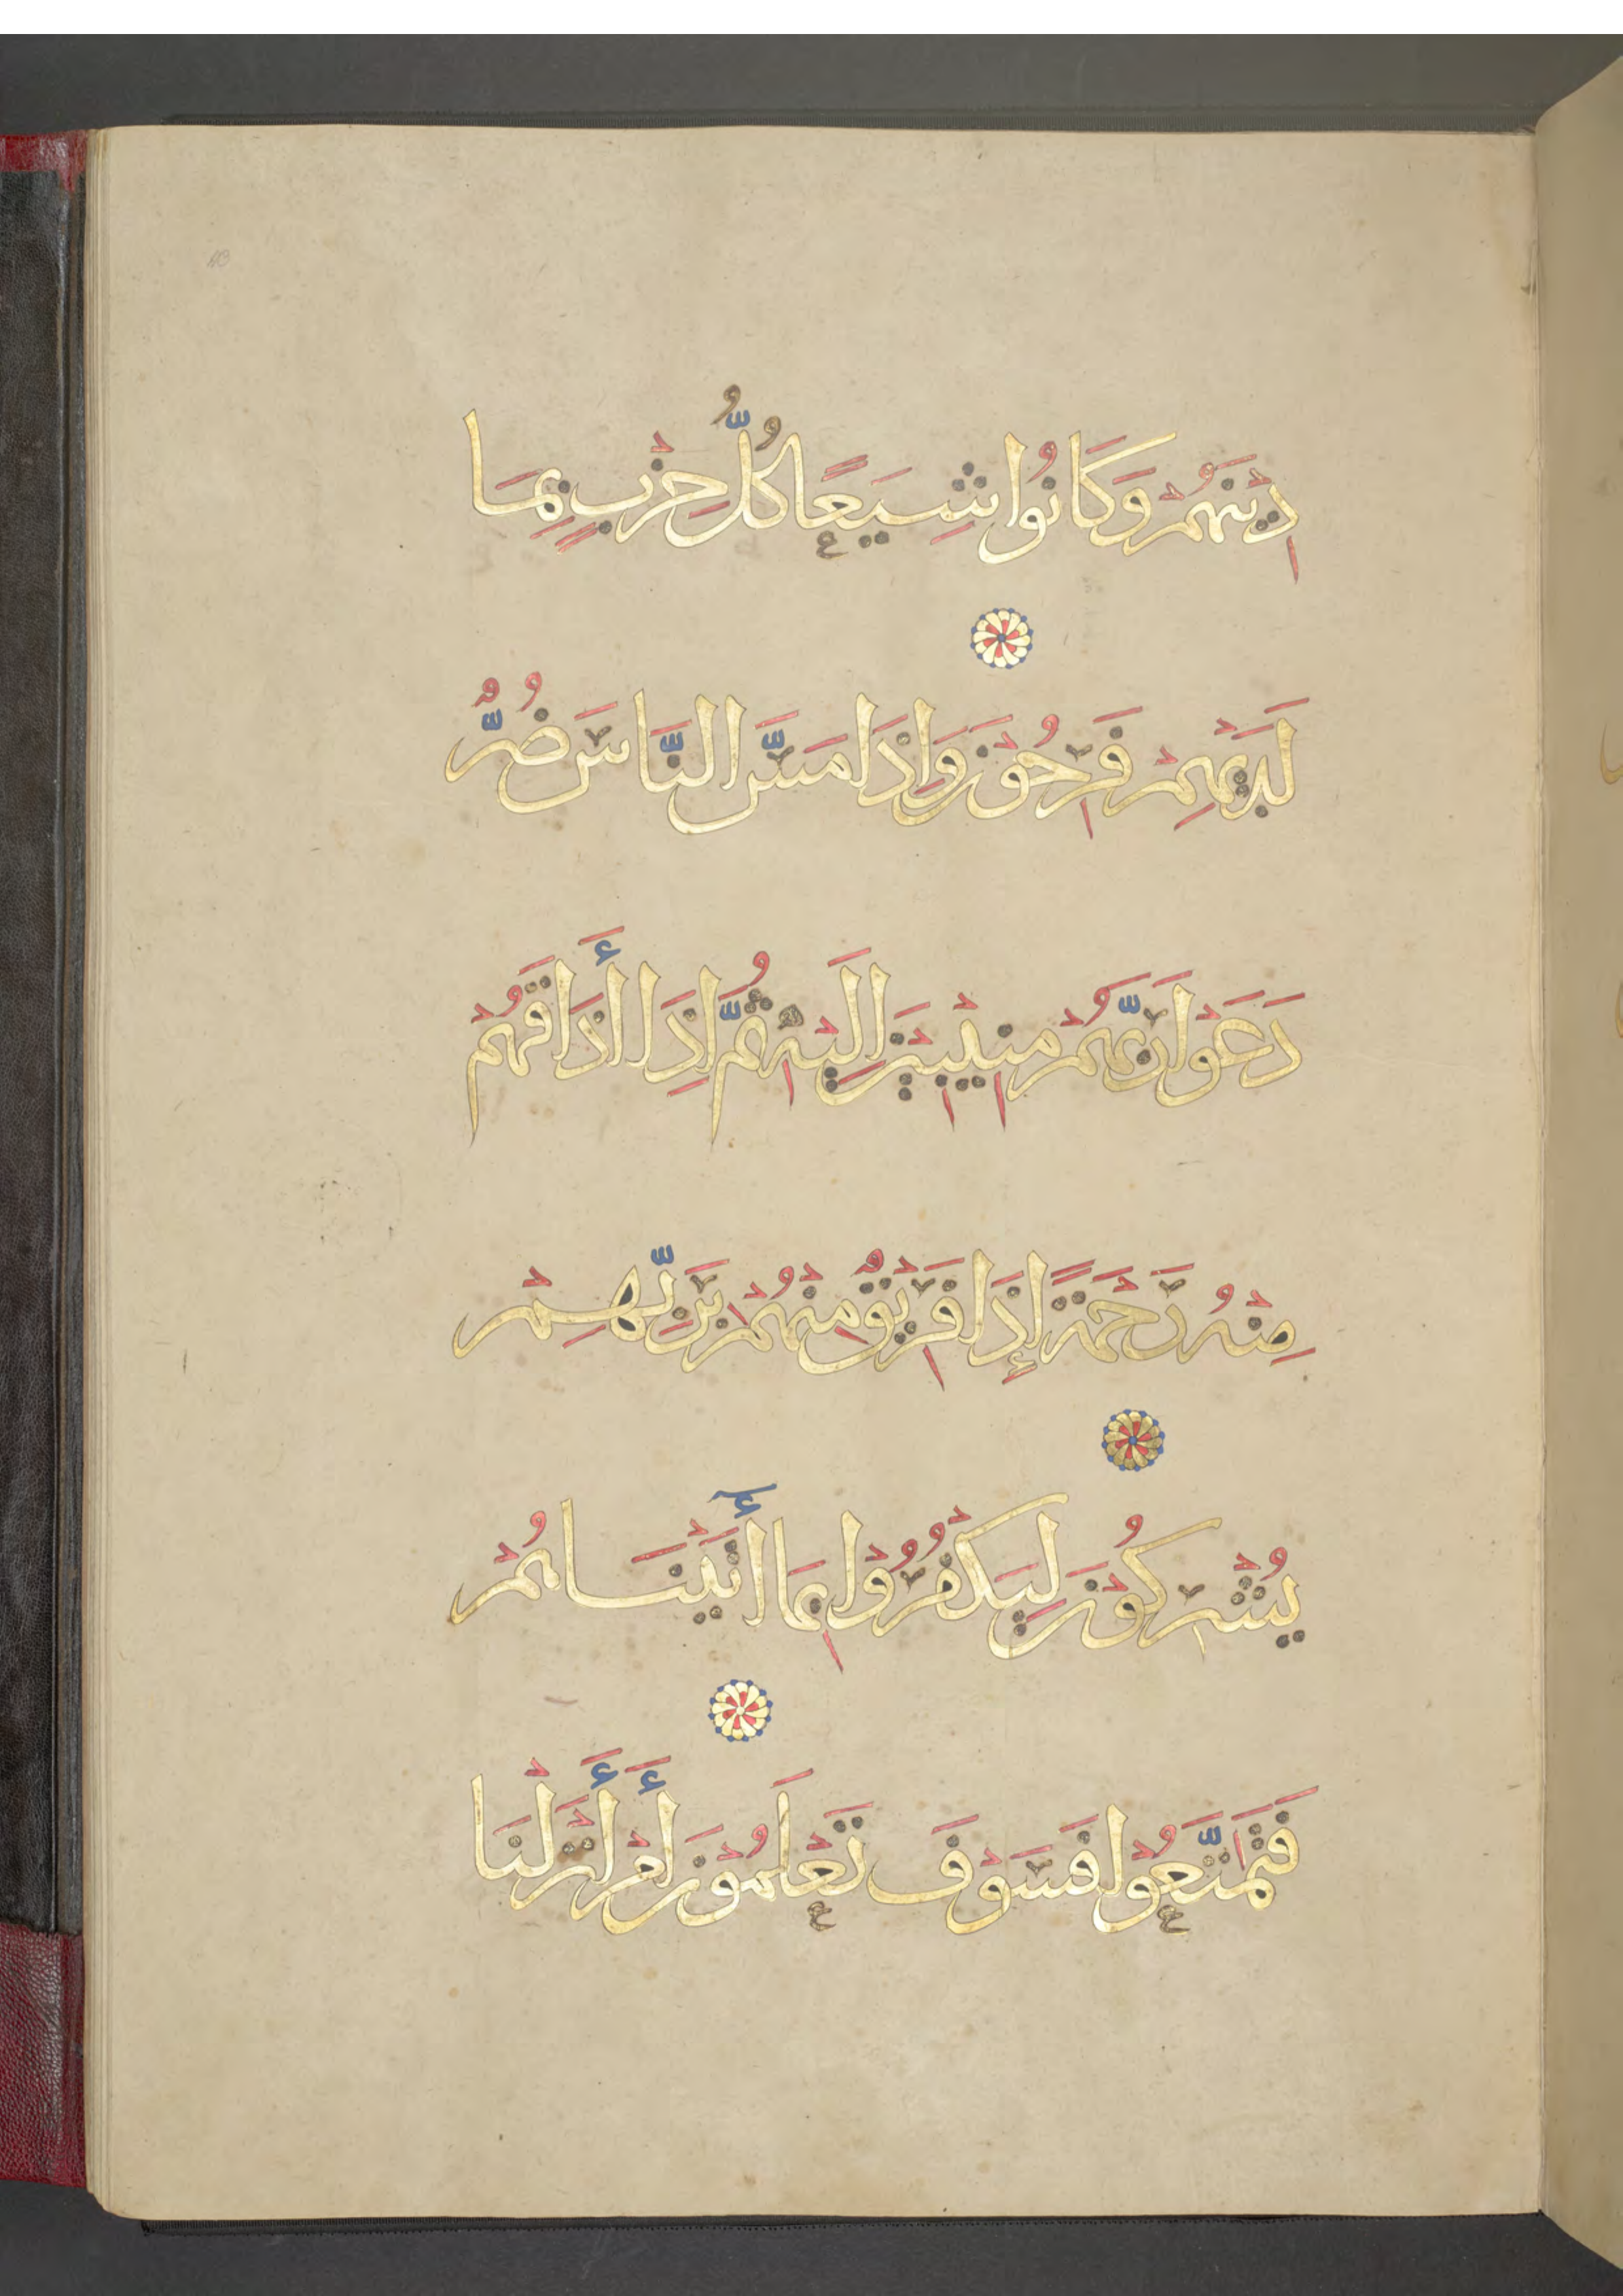 دِينَهُمْ وَكَانُوا شِيَعًا كُلُّ حِزْبٍ بِمَا
لَدَيْهِمْ فَرِحُوْنَ وَاِذَا مَسَّ النَّاسَ ضُرٌّ
دَعَوْا رَبَّهُمْ مُنِيْبِيْنَ اِلَيْهِ ثُمَّ اِذَا أَذَاقَهُمْ
مِنْهُ رَحْمَةً إِذَا فَرِيْقٌ مِنْهُمْ بِرَبِّهِمْ
يُشْرِكُوْنَ لِيَكْفُرُوْا بِمَا أٰتَيْنَاهُمْ
فَتَمَتَّعُوْا فَسَوْفَ تَعْلَمُوْنَ أَمْ أَنْزَلْنَا